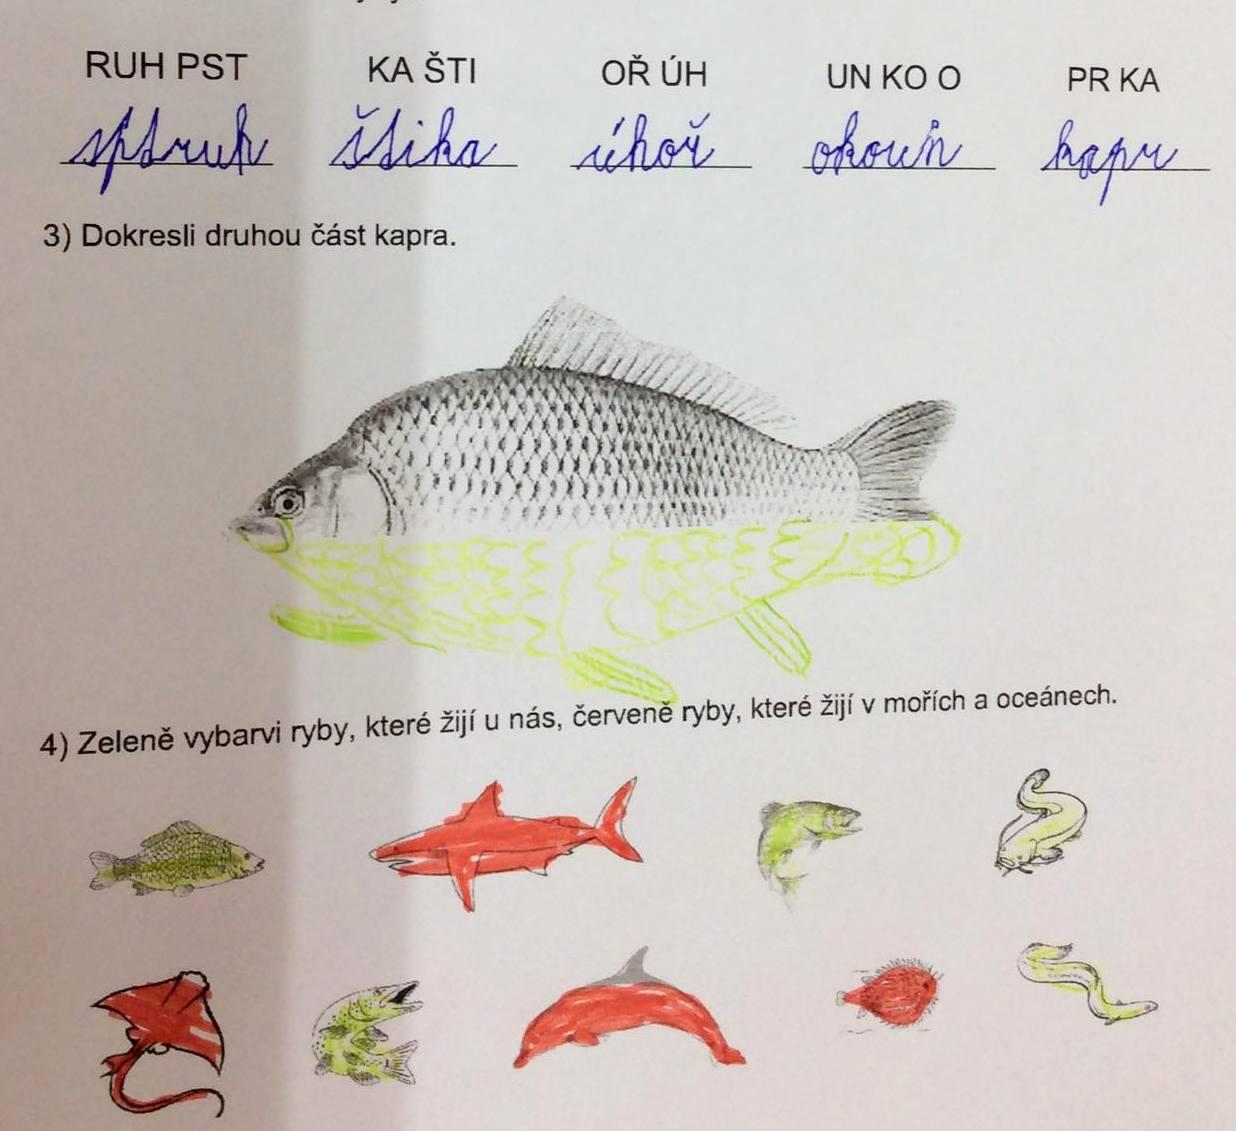 RUH PST KA ŠTI OŘ ÚH UN KO O PR KA
sptruh štika úhoř okoun kapr
3) Dokresli druhou část kapra.
4) Zeleně vybarvi ryby, které žijí u nás, červeně ryby, které žijí v mořích a oceánech.